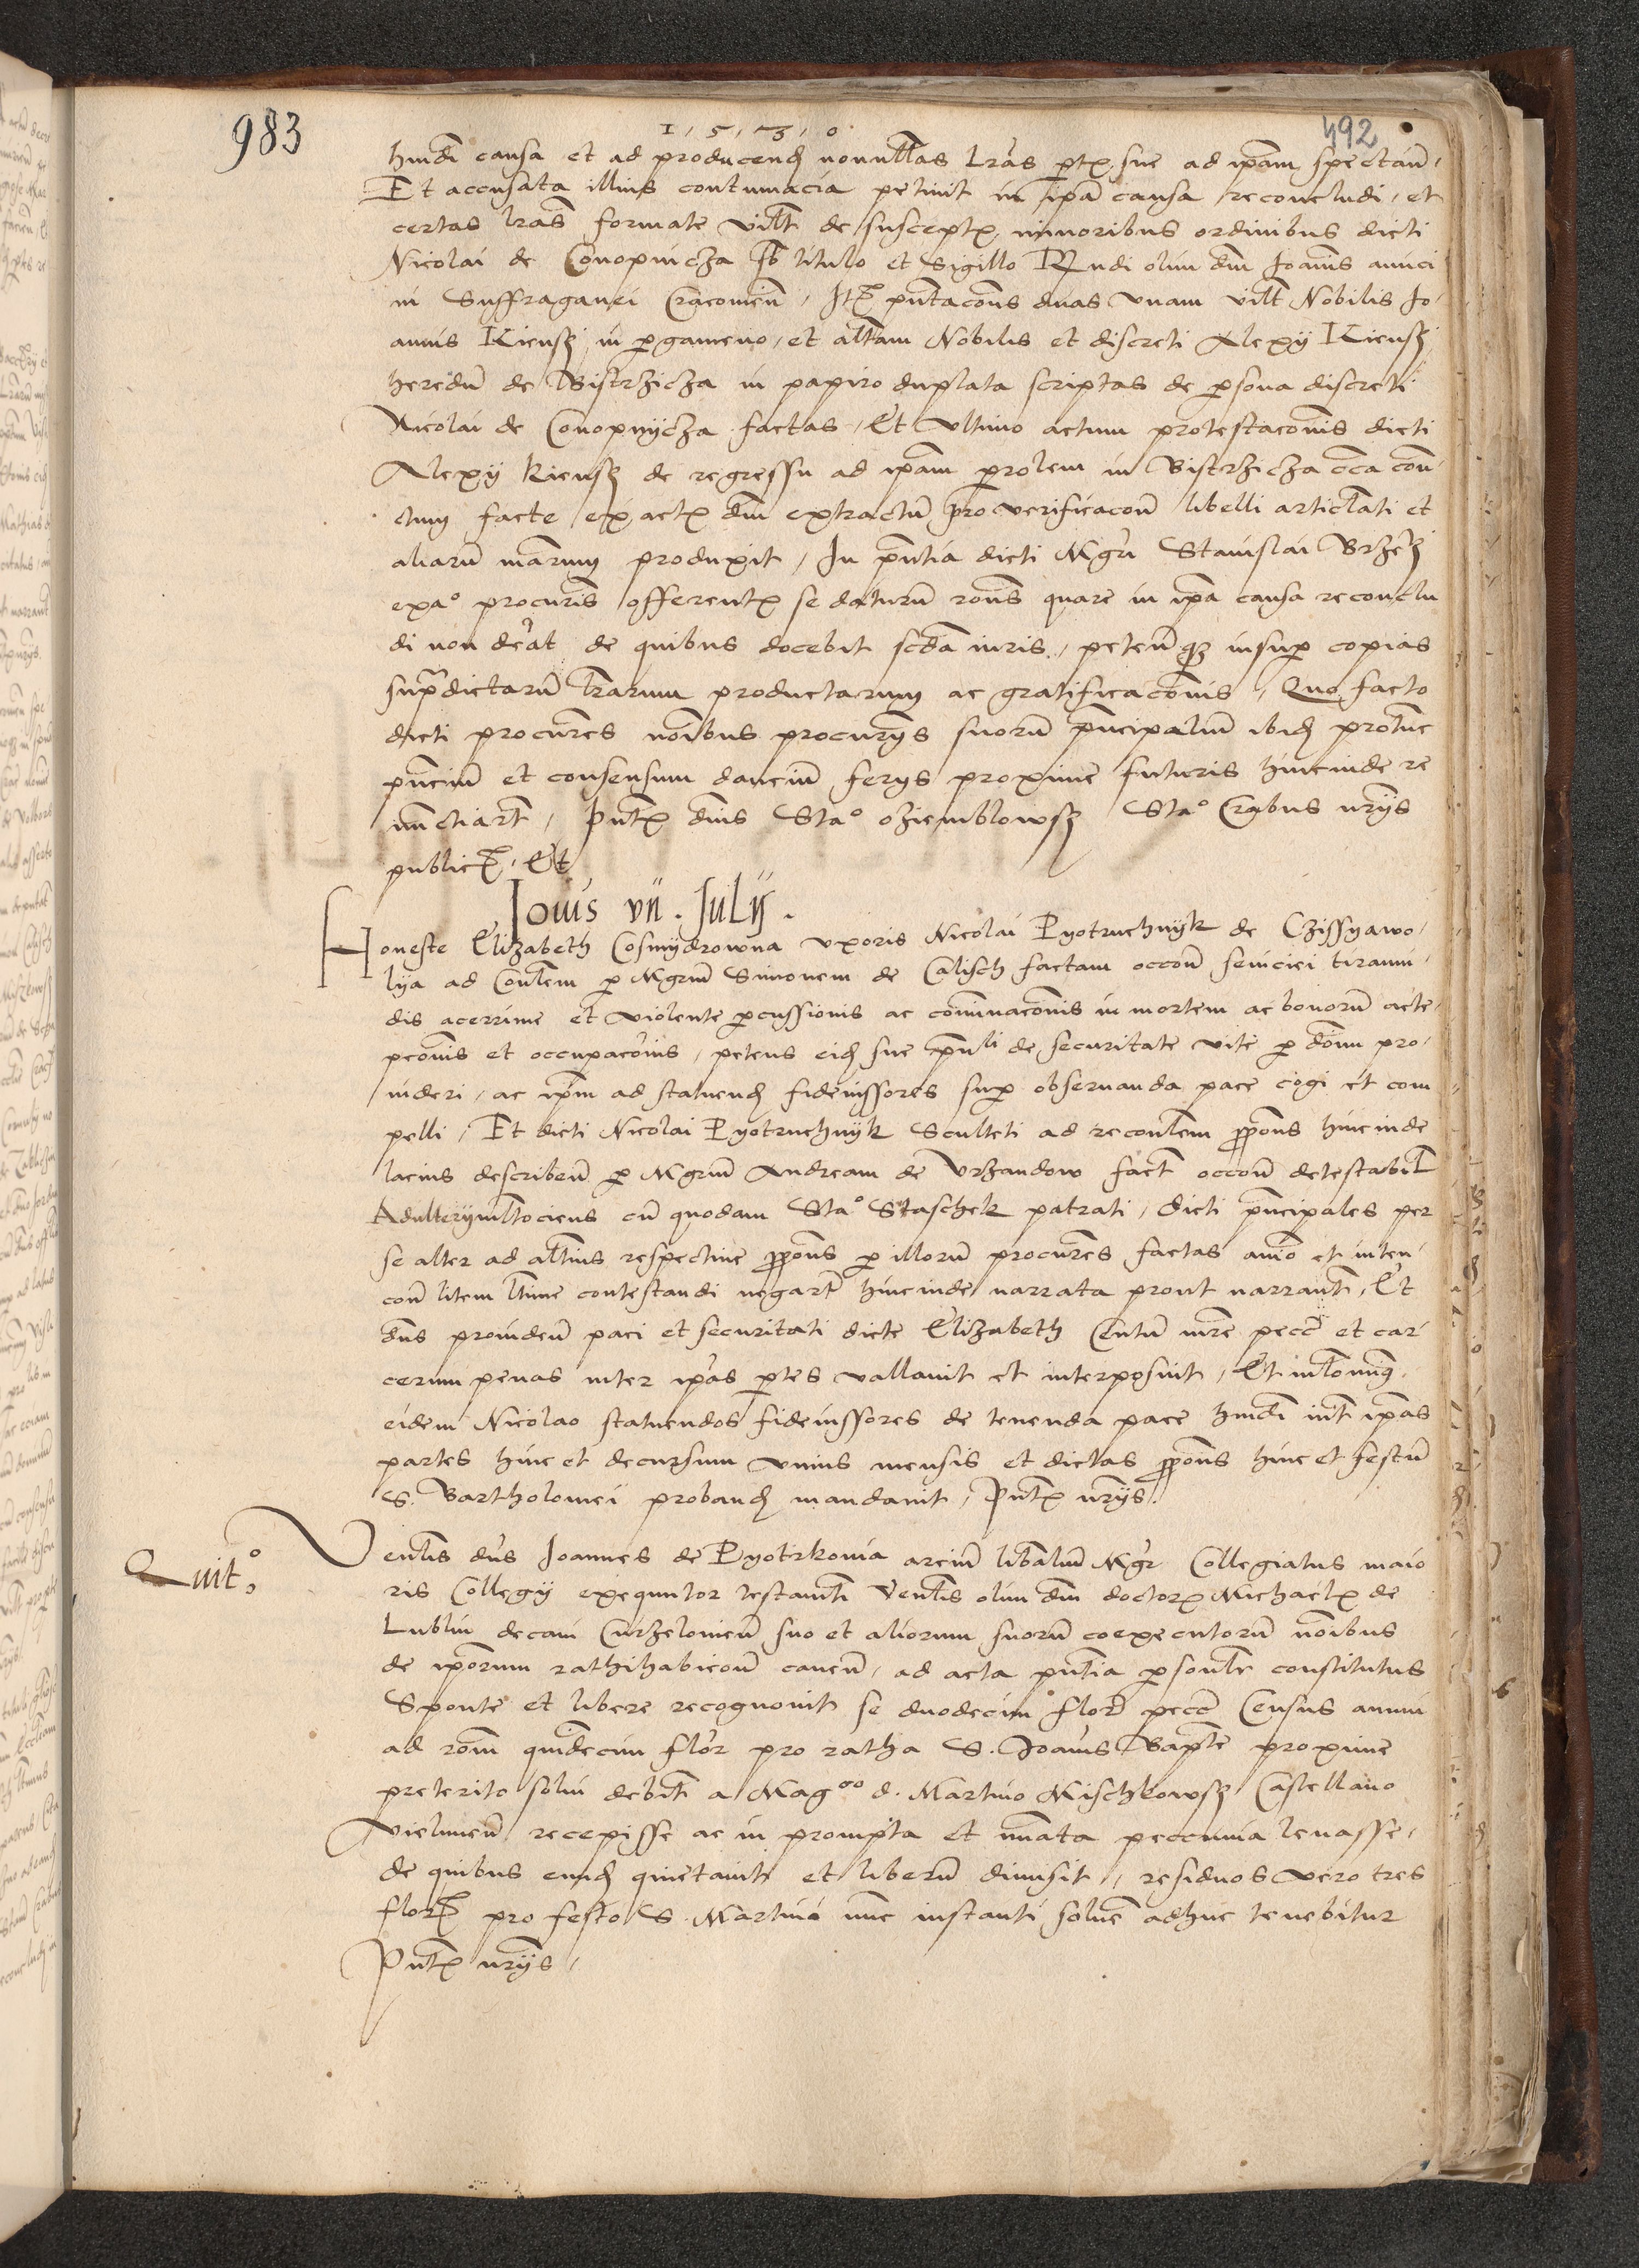 983
1 5 3 0
492
hmdi causa et ad producend nonnullas lras ptx sue ad ipam spectan
Et accusata illius contumacia petiuit in ipa causa reconcludi, et
certas lras formate vilt de susceptx minoribus ordinibus dicti
Nicolai de Conopnicza sb titulo et Sigillo Rndi olim dni Joannis
in Suffraganei Cracouien, Itx pntacons duas vnam vilt Nobilis Jo
annis Kiensz in pgameno, et altam Nobilis et discreti Alexy Kiensz
heredu de Bistrzicza in papiro duplata scriptas de psona discreti
Nicolai de Conopnycza factas, Et vltimo actum protestaconis dicti
Alexy Kiensz de regressu ad ipam prolem in Bistrzicza cca con
ctum facte ex actx dni extractum pro verificacon libelli articlati et
aliaru marum produxit, In pntia dicti Mgri Stanislai Brzez
exao procuris offerentx se daturu rons quare in ipa causa reconclu
di non debeat de quibus docebit scda iuris, peten qz insup copias
supradictaru lrarum productarum ac gratificaconis, Quo facto
dicti procures noibus procurys suoru pncipaliu ibid protunc
pnciu et consensum danciu ferys proxime futuris hincinde re
nuncciart, Pntx dnis Stao oziemblowsz Stao Crabus nrijs
publicx, Et
Jouis vii. Julij.
Honeste Elizabeth Cosmydrowna vxoris Nicolai Pyotruchnyk de Czissyawo
lya ad Conlem p Mgrum Simonem de Calisch factam occon seuiciei tiranni
dis acerrime et violente pcussionis ac cominaconis in mortem ac bonoru acte
pconis et occupaconis, petens eid sue pnli de securitate vite p donu pro
uideri, ac ipm ad statuend fideiussores sup obseruanda pace cogi et com
pelli, Et dicti Nicolai Pyotruchnyk Sculteti ad reconlem ppons hincinde
lacius describen p Mgrum Andream de Vrzandow fact occon detestabil
Adulterij mltociens cu quodam Stao Staschek patrati, dicti pncipales per
se alter ad altius respectiue ppons p illoru procures factas animo et inten
con litem ltime contestandi negart hincinde narrata prout narrant, Et
dns prouiden paci et securitati dicte Elizabeth Centu mre pecc et car
cerum penas inter ipas ptes vallauit et interposuit, Et
eidem Nicolao statuendos fideiussores de tenenda pace hmdi int ipas
partes hinc et decursum vnius mensis et dictas ppons hinc et festu
S. Bartholomei proband mandauit, Pntx nrijs.
Quito
Venlis dns Joannes de Pyotrkouia arciu libaliu Mgr Collegiatus maio
ris Collegy exequutor testamti Venlis olim dni doctorx Michaelx de
Lublin decani Curzelouien suo et aliorum suoru coexecutoru noibus
de iporum rathihabicon cauen, ad acta pntia psonlr constitutus
Sponte et libere recognouit se duodecim flor pecc Census annui
ad ronm quindecim flor pro ratha S. Joanis Bapte proxime
preterito solui debit a Magco d. Martino Mischkowsz Castellano
Vielunen recepisse ac in prompta et nuata peccunia leuasse,
de quibus eund quietauit et liberu dimisit, residuos vero tres
florx pro festo S. Martini nunc instanti soluere adhuc tenebitur
Pntx nrijs,